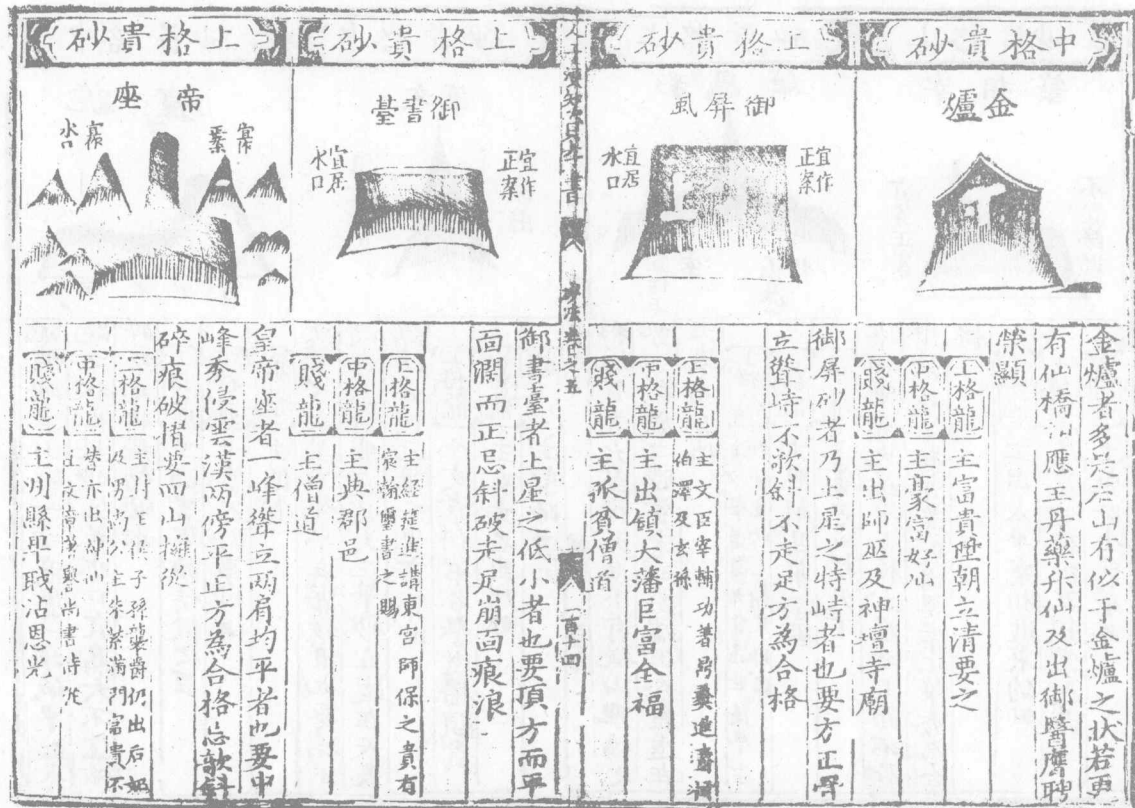 中格貴砂
金爐
金爐者多是石山有似于金爐之狀若更
有仙橋應主丹藥升仙及出御醫膺聘
榮顯
上格龍 主富貴陞朝立清要之
中格龍 主豪富好仙
賤龍 主出師巫及神壇寺廟
上格貴砂
御屏風
宜作
正案
宜居
水口
御屏砂者乃土星之特峙者也要方正
立聳峙不欹斜不走足方為合格
上格龍 主文臣宰輔功著
伯澤及玄孫
中格龍 主出鎮大藩巨富全福
賤龍 主孤貧僧道
一百十四
上格貴砂
御書臺
宜作
正案
宜居
水口
御書臺者土星之低小者也要頂方而平
面闊而正忌斜破走足崩面痕浪
上格龍 主經筵進講東宮師保之貴有
宸翰璽書之賜
中格龍 主典郡邑
賤龍 主僧道
上格貴砂
帝座
水口
皇帝座者一峰聳立兩肩均平者也要中
峰秀侵雲漢兩傍平正方為合格忌欹斜
碎痕破摺要四山擁從
上格龍 主封王侯子孫襲爵仍出后妃
及男尚公主朱紫滿門富貴不
中格龍
賤龍 主州縣卑職沾恩光